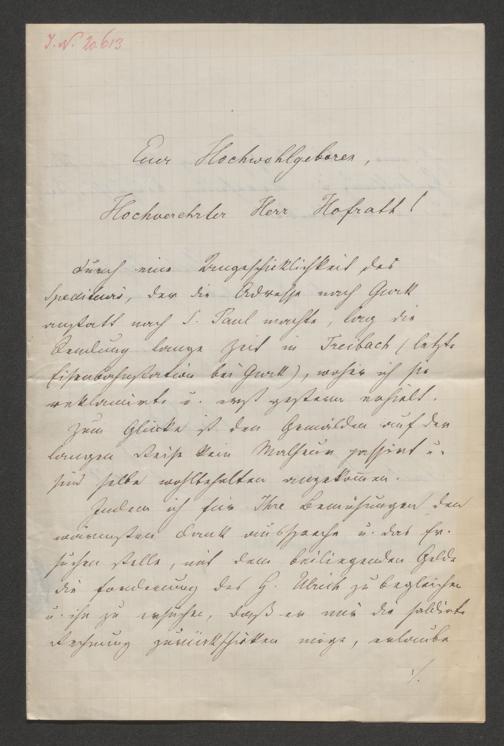 J. N. 20.613
Euer Hochwohlgeboren,
Hochverehrter Herr Hofrath!
Durch eine Ungeschicklichkeit des
Spediteurs, der die Adresse nach Gurk
anstatt nach S. Paul machte, lag die
Sendung lange Zeit in Treibach (letzte
Eisenbahnstation bei Gurk), woher ich sie
reklamirte u. erst gestern erhielt.
Zum Glücke ist den Gemälden auf der
langen Reise kein Malheur passirt u.
sind selbe wohlbehalten angekommen.
Indem ich für Ihre Bemühungen den
wärmsten Dank ausspreche u. das Er-
suchen stelle, mit dem beiliegenden Gelde
die Forderung des H. Ulrich zu begleichen
u. ihn zu ersuchen, daß er mir die saldirte
Rechnung zurückschicken möge, erlaube
./.